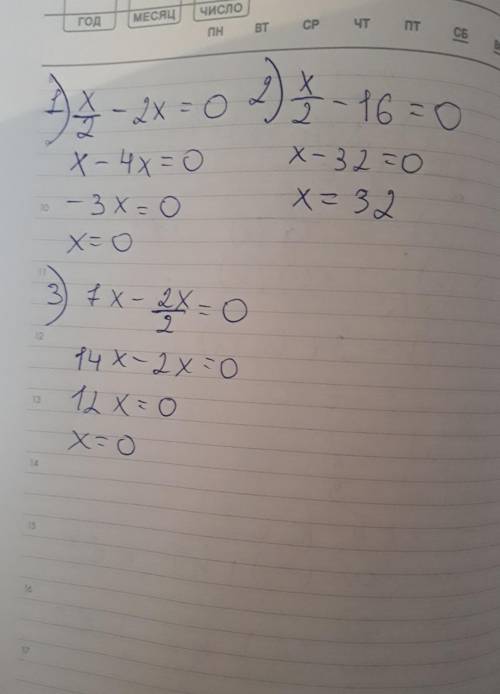 ГОД МЕСЯЦ ЧИСЛО
ПН ВТ СР ЧТ ПТ СБ
1) x/2 - 2x = 0
x - 4x = 0
-3x = 0
x = 0
2) x/2 - 16 = 0
x - 32 = 0
x = 32
3) 7x - 2x/2 = 0
14x - 2x = 0
12x = 0
x = 0
10
11
12
13
14
15
16
17